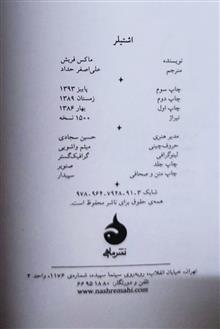 اشتیلر
نویسنده ماکس فریش
مترجم علی‌اصغر حداد
چاپ سوم پاییز ۱۳۹۳
چاپ دوم زمستان ۱۳۸۹
چاپ اول بهار ۱۳۸۶
تیراژ ۱۵۰۰ نسخه
مدیر هنری حسین سجادی
حروف‌چینی میثم واشویی
لیتوگرافی گرافیک‌گستر
چاپ جلد صنوبر
چاپ متن و صحافی سپیدار
شابک ۹۷۸.۹۶۴.۷۹۴۸.۹۱.۳
همه‌ی حقوق برای ناشر محفوظ است.
نشر ماهی
تهران، خیابان انقلاب، روبه‌روی سینما سپیده، شماره‌ی ۱۱۷۶، واحد ۴
تلفن و دورنگار: ۶۶۹۵۱۸۸۰
www.nashremahi.com